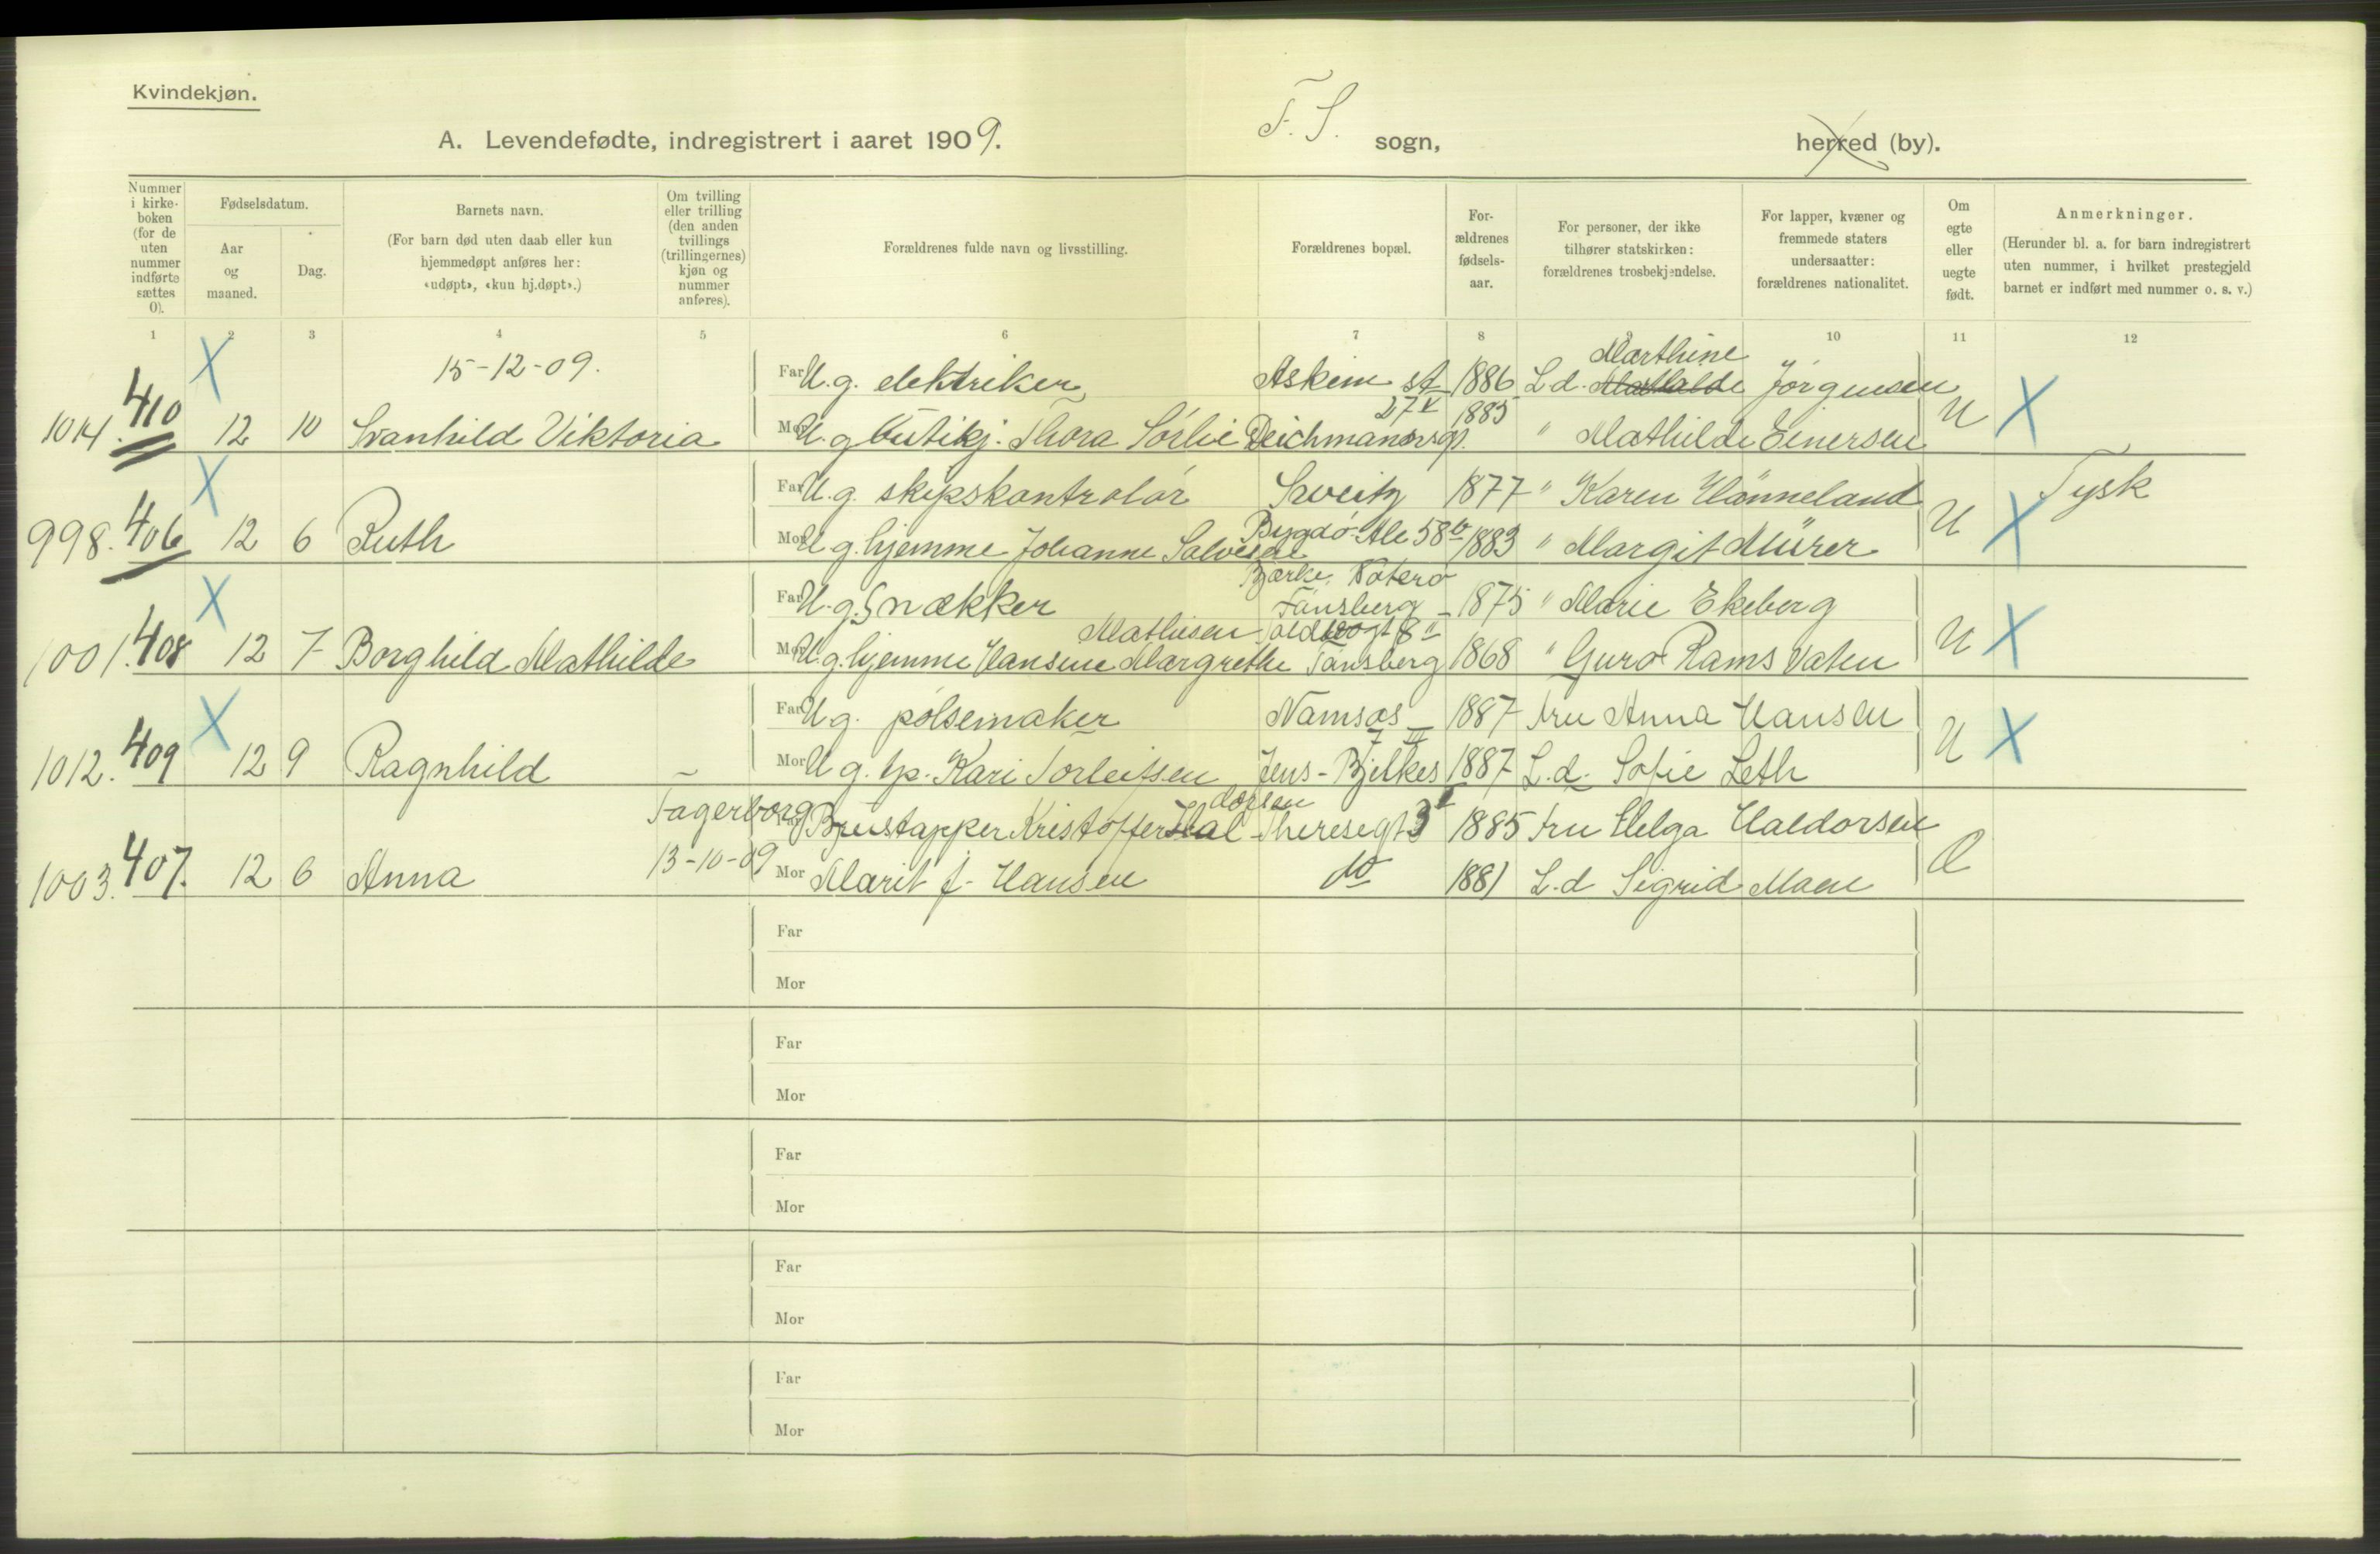 Kvindekjøn.
A. Levendefødte, indregistrert i aaret 1909.
F. S. sogn,
herred (by).
Nummer i kirkeboken (for de uten nummer indførte sættes 0).
Fødselsdatum.
Aar og maaned.
Dag.
Barnets navn.
(For barn død uten daab eller kun hjemmedøpt anføres her: «udøpt», «kun hj.døpt».)
Om tvilling eller trilling (den anden tvillings (trillingernes) kjøn og nummer anføres).
Forældrenes fulde navn og livsstilling.
Forældrenes bopæl.
Forældrenes fødselsaar.
For personer, der ikke tilhører statskirken: forældrenes trosbekjendelse.
For lapper, kvæner og fremmede staters undersaatter: forældrenes nationalitet.
Om egte eller uegte født.
Anmerkninger.
(Herunder bl. a. for barn indregistrert uten nummer, i hvilket prestegjeld barnet er indført med nummer o. s. v.)
1 2 3 4 5 6 7 8 10 11 12
15-12-09.
Far U. g. elektriker Askim st 1886 L.d. Marthine Jørgensen
1014. 410 12 10 Svanhild Viktoria Mor U. g. butikj. Thora Sørlie Deichmannsgt. 27 V 1885 " Mathilde Einersen U
Far U. g. skipskontrolør Sweitz 1877 " Karen Hanneland Tysk
998. 406 12 6 Ruth Mor U. g. hjemme Johanne Salvesen Bygdø Ale 58 b 1883 " Margit Mürer U
Bjerke, Nøterø
Far U. g. Snekker Tønsberg 1875 " Marie Ekeberg
1001. 408 12 7 Borghild Mathilde Mor U. g. hjemme Hansine Margrethe Mathisen Toldbogt 8 II Tønsberg 1868 " Guro Rams Vaten U
Far U. g. pølsemaker Namsos 1887 fru Anna Hansen
1012. 409 12 9 Ragnhild Mor U. g. tp. Kari Torleifsen Jens-Bjelkes 7 III 1887 L.d. Sofie Leth U
Fagerborg Far Brustapper Kristoffer Haldorsen Theresegt 3 1885 fru Helga Haldorsen
1003. 407. 12 6 Anna 13-10-09 Mor Marit f. Hansen do 1881 L.d Sigrid Moen
Far
Mor
Far
Mor
Far
Mor
Far
Mor
Far
Mor